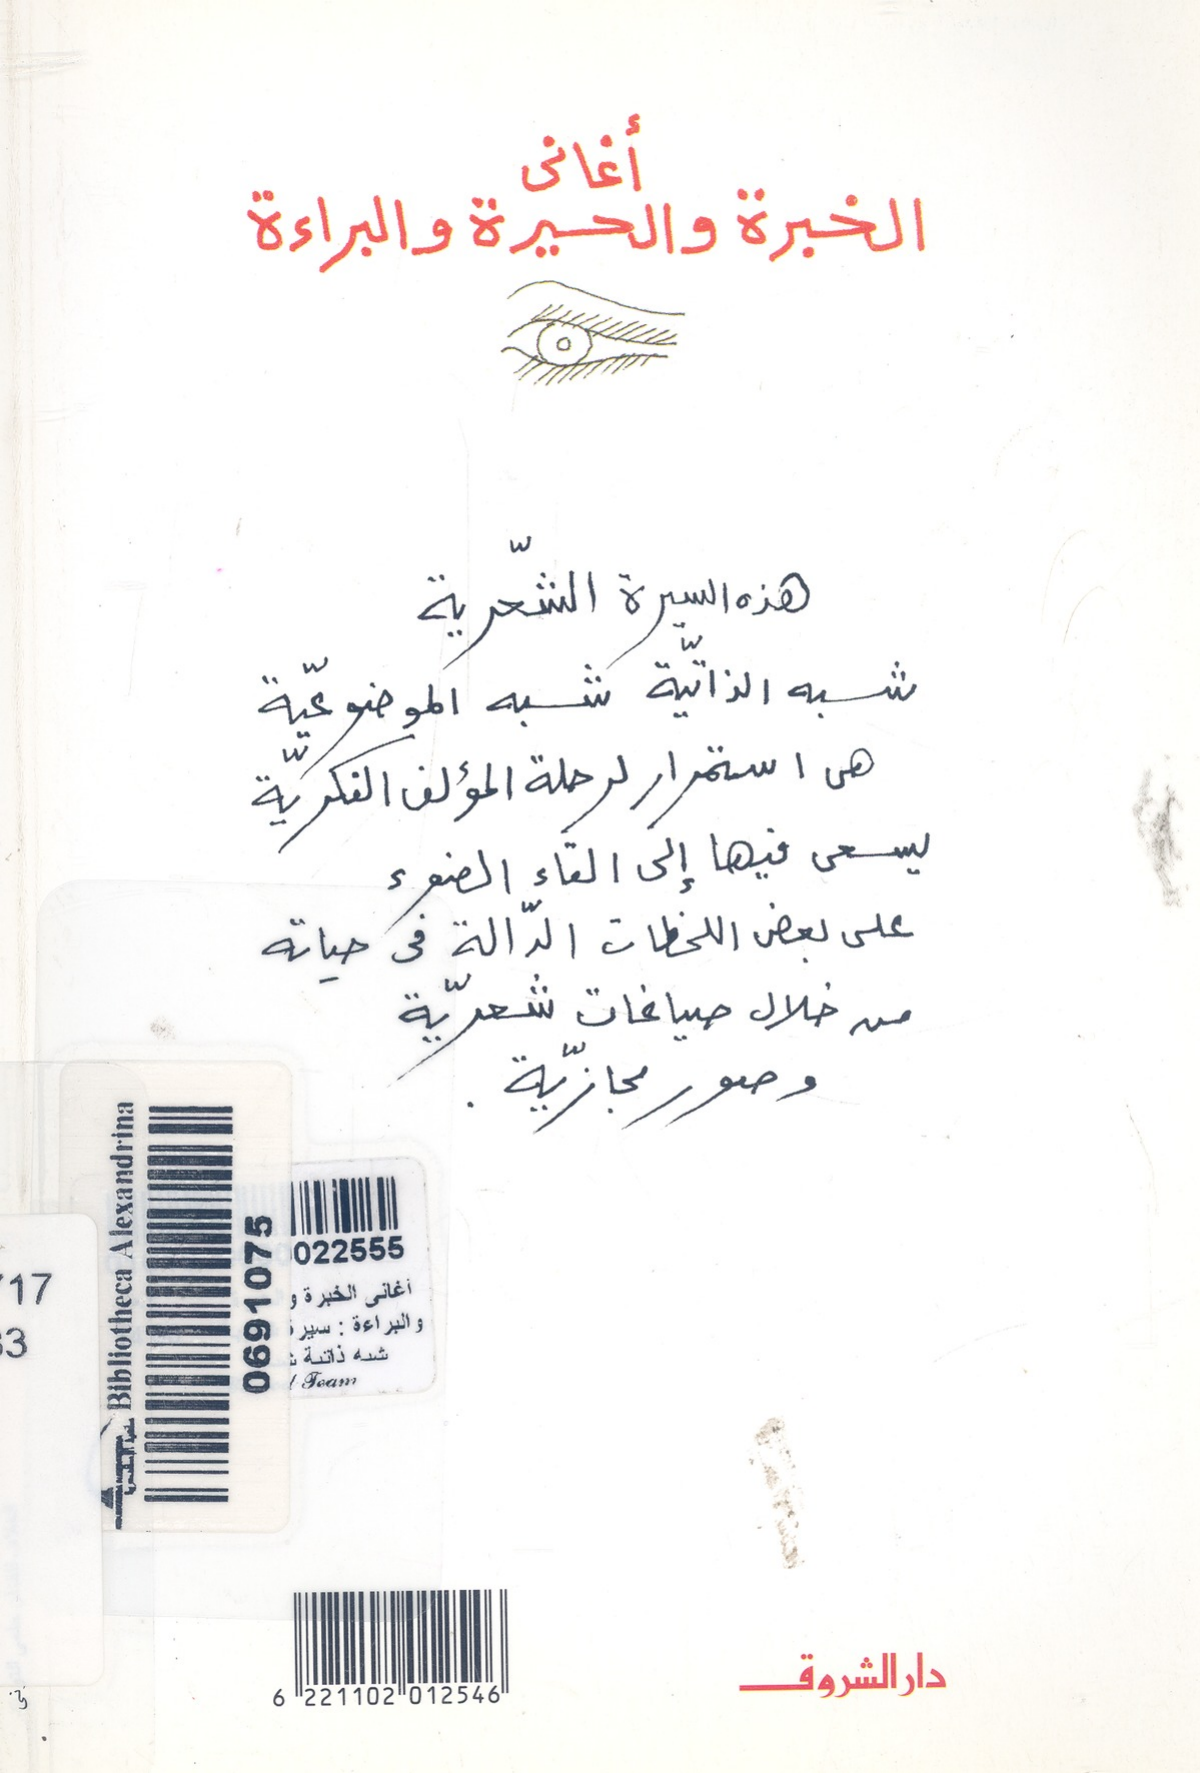 أغانى
الخبرة والحيرة والبراءة
هذه السيرة الشّعرية
شبه الذاتيّة شبه الموضوعيّة
هى استمرار لرحلة المؤلف الفكريّة
يسعى فيها إلى القاء الضوء
على بعض اللحظات الدّالة فى حياته
من خلال صياغات شعريّة
وصور مجازيّة .
Bibliotheca Alexandrina
0691075
0022555
أغانى الخبرة و
والبراءة : سيرة
شبه ذاتية ش
Team
717
33
6 221102 012546
دار الشروق